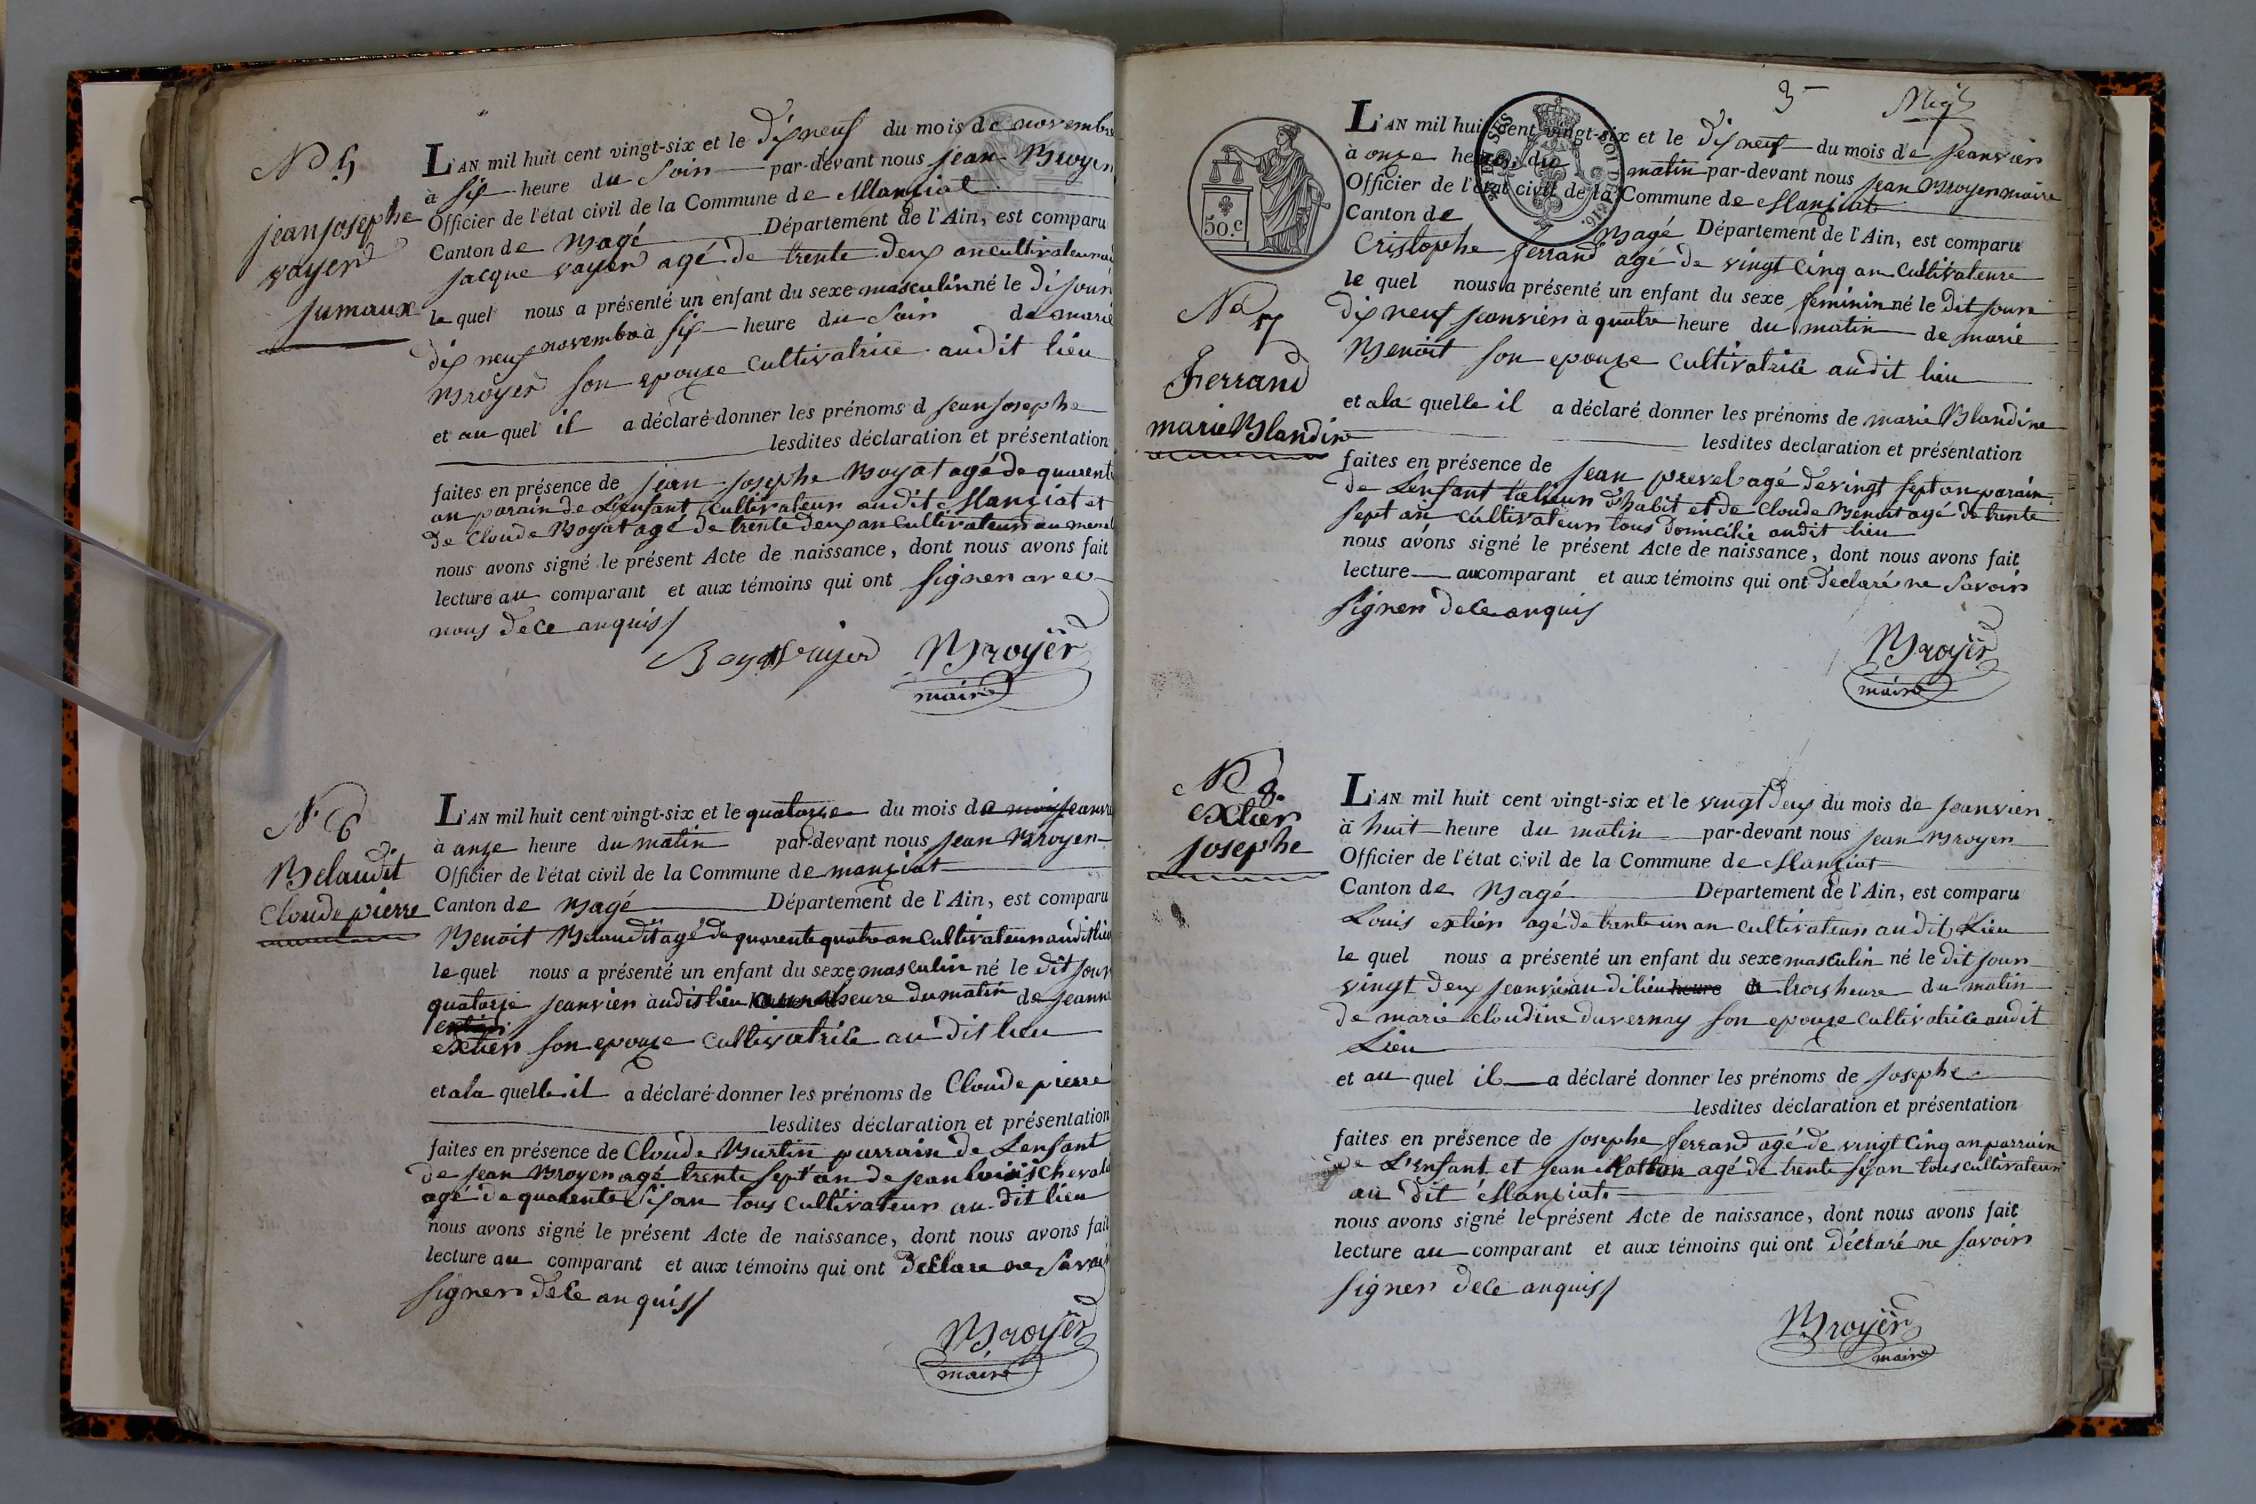 N° 5
jean josephe
vayer
jumaux
L'AN mil huit cent vingt-six et le dix neuf du mois de novembre
à six heure du Soir par-devant nous jean Broyer
Officier de l'état civil de la Commune de Manziat
Canton de Bagé Département de l'Ain, est comparu
jacque vayer agé de trente deux an cultivateur
le quel nous a présenté un enfant du sexe masculin né le di jour
dix neuf novembre à six heure du Soir de marie
Broyer son epouze cultivatrice audit lieu
et au quel il a déclaré donner les prénoms d jean josephe
lesdites déclaration et présentation
faites en présence de jean josephe Boyat agé de quarente
an parain de L'enfant cultivateur audit Manziat et
de Cloude Boyat agé de trente deux an cultivateur au meme
nous avons signé le présent Acte de naissance, dont nous avons fait
lecture au comparant et aux témoins qui ont signer avec
nous de ce anquis
Boyat vayer Broyer
maire
N° 6
Belaudit
Cloude pierre
L'AN mil huit cent vingt-six et le quatorze du mois de jeanvier
à onze heure du matin par-devant nous jean Broyer
Officier de l'état civil de la Commune de manziat
Canton de Bagé Département de l'Ain, est comparu
Benoit Belaudit agé de quarente quatre an cultivateur audit lieu
le quel nous a présenté un enfant du sexe masculin né le dit jour
quatorze jeanvier audit lieu heure du matin de jeanne
extier son epouze cultivatrice au dit lieu
et a la quelle il a déclaré donner les prénoms de Cloude pierre
lesdites déclaration et présentation
faites en présence de Cloude Burtin parrain de L'enfant
de jean Broyer agé trente sept an de jean louis Cheval
agé de quarente six an tous cultivateur au dit lieu
nous avons signé le présent Acte de naissance, dont nous avons fait
lecture au comparant et aux témoins qui ont declare ne savoir
signer de ce anquis
Broyer
maire
3
50.c
L'AN mil huit cent vingt-six et le dix neuf du mois de jeanvier
à onze heure du matin par-devant nous jean Broyer maire
Officier de l'état civil de la Commune de Manziat
Canton de Bagé Département de l'Ain, est comparu
Cristophe ferrand agé de vingt cinq an cultivateure
le quel nous a présenté un enfant du sexe feminin né le dit jour
dix neuf jeanvier à quatre heure du matin de marie
Benoit son epouze cultivatrice audit lieu
N° 7
Ferrand
marie Blandine
et a la quelle il a déclaré donner les prénoms de marie Blandine
lesdites declaration et présentation
faites en présence de jean prevel agé de vingt sept an parain
de L'enfant talieur d'habit et de Cloude Benoit agé de trente
sept an cultivateur tous domicilié audit lieu
nous avons signé le présent Acte de naissance, dont nous avons fait
lecture au comparant et aux témoins qui ont déclaré ne savoir
signer de ce anquis
Broyer
maire
N° 8.
extier
josephe
L'AN mil huit cent vingt-six et le vingt deux du mois de jeanvier
à huit heure du matin par-devant nous jean Broyer
Officier de l'état civil de la Commune de Manziat
Canton de Bagé Département de l'Ain, est comparu
Louis extier agé de trente un an cultivateur au dit Lieu
le quel nous a présenté un enfant du sexe masculin né le dit jour
vingt deux jeanvier au di lieu heure a trois heure du matin
de marie cloudine duvernay son epouze cultivatrice audit
Lieu
et au quel il a déclaré donner les prénoms de josephe
lesdites déclaration et présentation
faites en présence de josephe ferrand agé de vingt cinq an parrain
de L'enfant et jean Catton agé de trente six an tous cultivateur
au dit Manziat
nous avons signé le présent Acte de naissance, dont nous avons fait
lecture au comparant et aux témoins qui ont déclaré ne savoir
signer de ce anquis
Broyer
maire